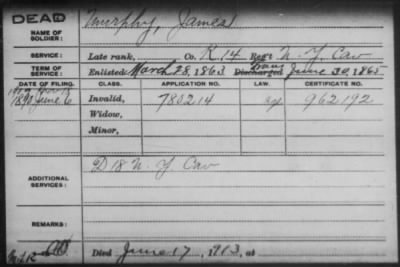 DEAD
NAME OF SOLDIER: Murphy, James
SERVICE: Late rank, Co. K 14 Reg't N. Y. Cav
TERM OF SERVICE: Enlisted March 28, 1863 Discharged Trans June 30, 1865
DATE OF FILING. CLASS. APPLICATION NO. LAW. CERTIFICATE NO.
1890 June 6 Invalid, 780214 962192
Widow,
Minor,
ADDITIONAL SERVICES: D 18 N. Y. Cav
REMARKS:
Died June 17, 1913, at